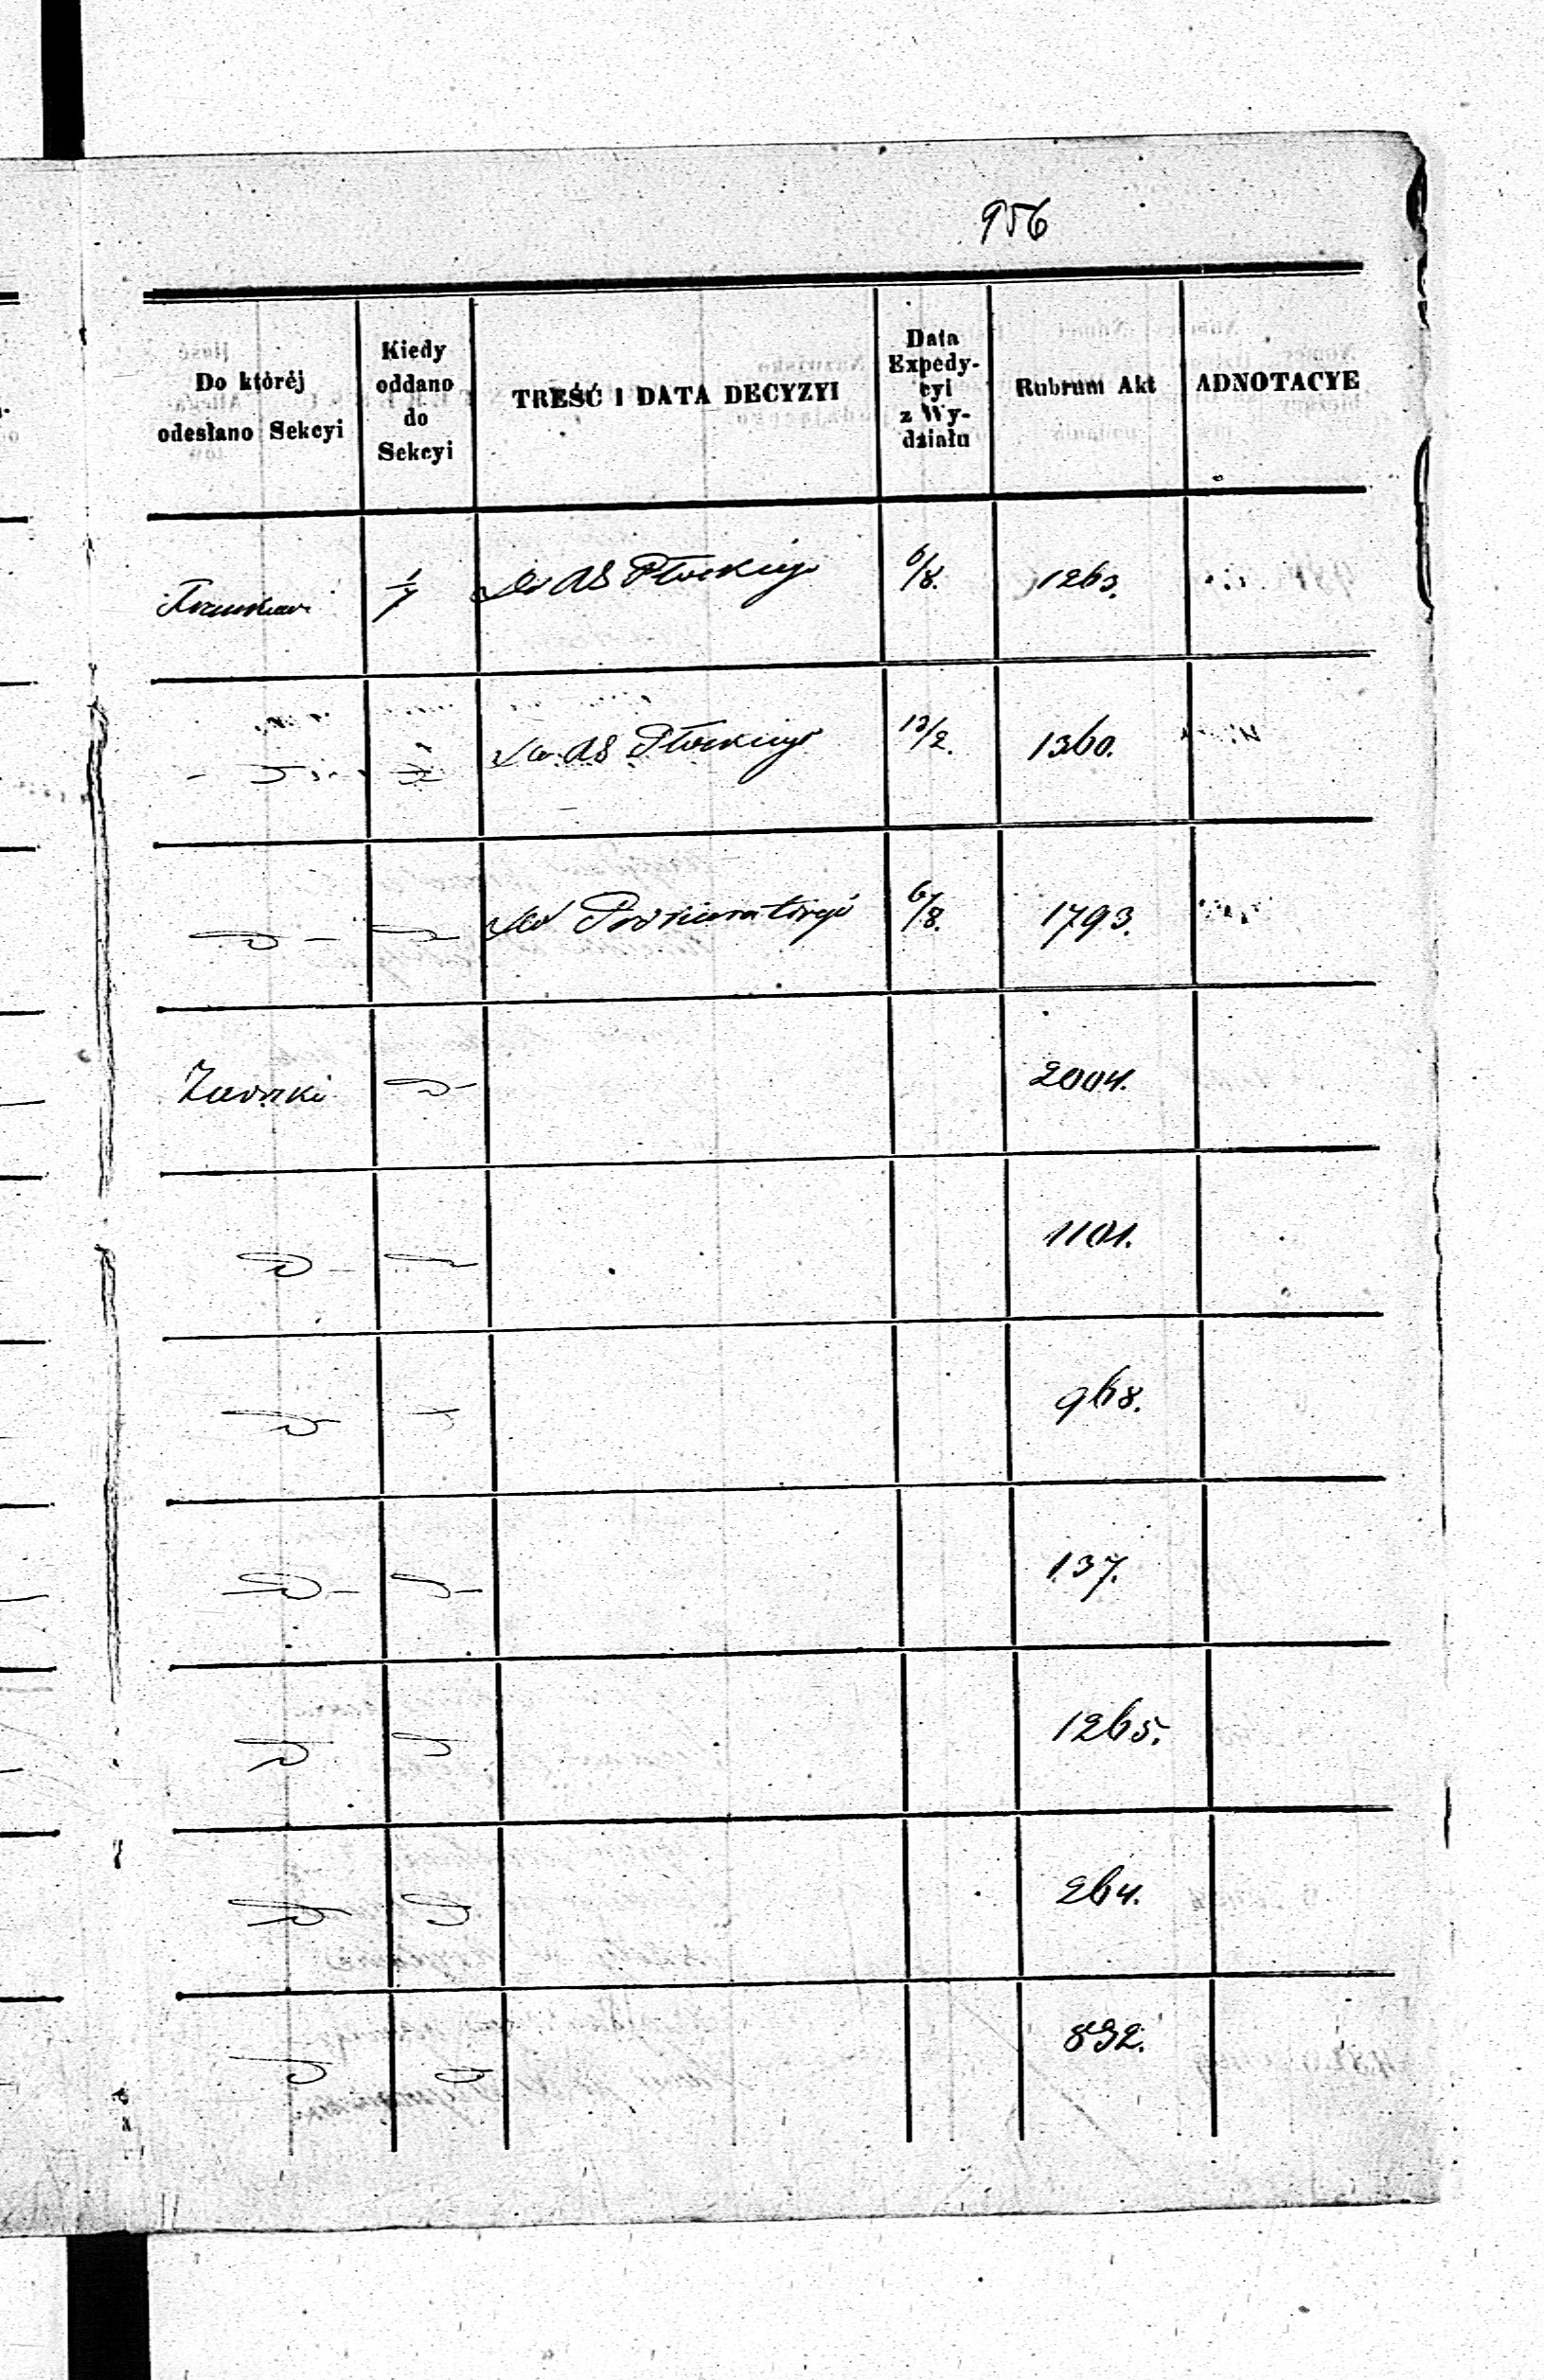 956
Do któréj odesłano Sekcyi
Kiedy oddano do Sekcyi
TREŚĆ I DATA DECYZYI
Data Expedycyi z Wydziału
Rubrum Akt
ADNOTACYE
1/7 Do AS Płockiego 6/8. 1263.
Do AS Płockiego 13/2. 1360.
Do Prokuratoryi 6/8. 1793.
2004.
1101.
968.
137.
1265.
264.
892.